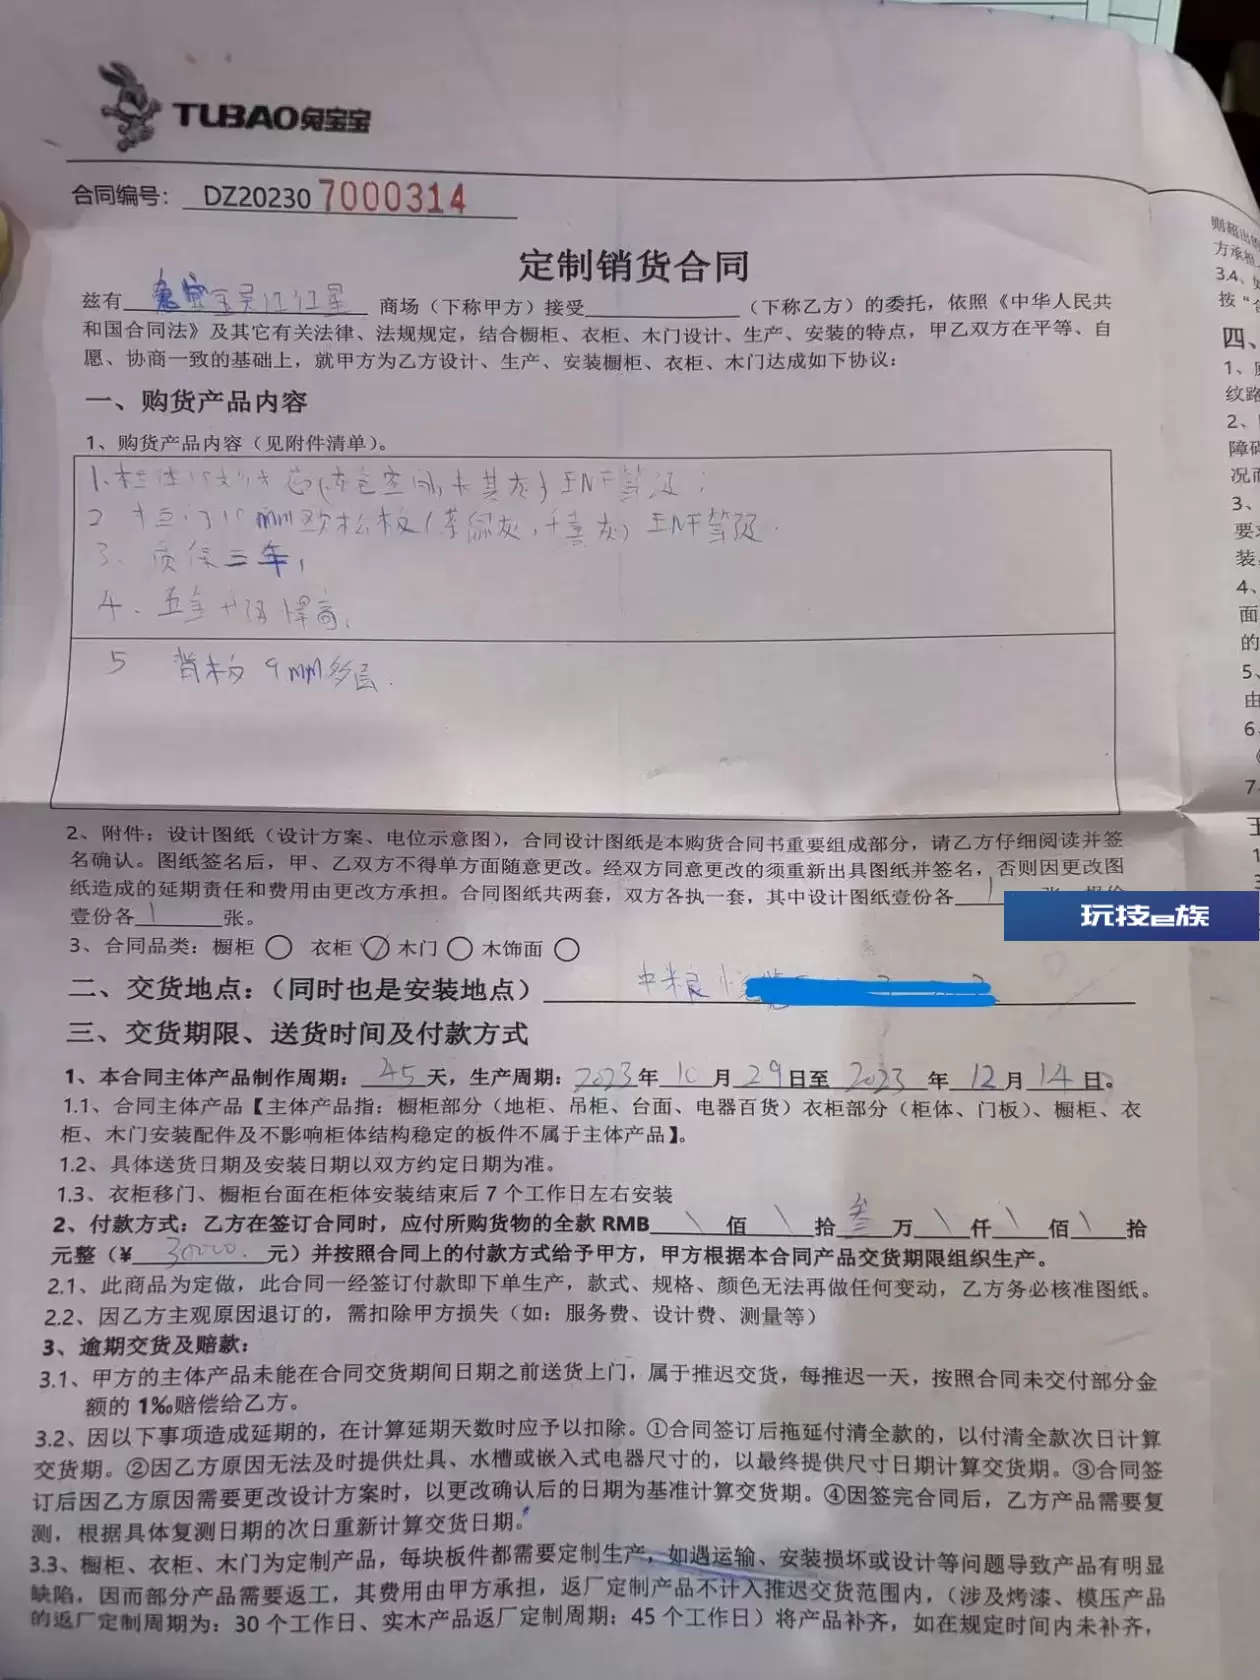 TUBAO兔宝宝
合同编号： DZ20230 7000314
定制销货合同
兹有 宝吴江红星 商场（下称甲方）接受 （下称乙方）的委托，依照《中华人民共
和国合同法》及其它有关法律、法规规定，结合橱柜、衣柜、木门设计、生产、安装的特点，甲乙双方在平等、自
愿、协商一致的基础上，就甲方为乙方设计、生产、安装橱柜、衣柜、木门达成如下协议：
一、购货产品内容
1、购货产品内容（见附件清单）。
1.柜体 ENF等级；
2 门 mm欧松板（ 灰，千喜灰）ENF等级.
3、质保三年，
4、五金 悍高，
5 背板 9mm多层.
2、附件：设计图纸（设计方案、电位示意图），合同设计图纸是本购货合同书重要组成部分，请乙方仔细阅读并签
名确认。图纸签名后，甲、乙双方不得单方面随意更改。经双方同意更改的须重新出具图纸并签名，否则因更改图
纸造成的延期责任和费用由更改方承担。合同图纸共两套，双方各执一套，其中设计图纸壹份各 1 张
壹份各 1 张。
玩技e族
3、合同品类：橱柜 衣柜 木门 木饰面
二、交货地点：（同时也是安装地点） 中粮
三、交货期限、送货时间及付款方式
1、本合同主体产品制作周期： 45 天，生产周期：2023年 10 月 29日至 2023 年 12月 14 日。
1.1、合同主体产品【主体产品指：橱柜部分（地柜、吊柜、台面、电器百货）衣柜部分（柜体、门板）、橱柜、衣
柜、木门安装配件及不影响柜体结构稳定的板件不属于主体产品】。
1.2、具体送货日期及安装日期以双方约定日期为准。
1.3、衣柜移门、橱柜台面在柜体安装结束后 7 个工作日左右安装
2、付款方式：乙方在签订合同时，应付所购货物的全款 RMB \ 佰 \ 拾 叁 万 \ 仟 \ 佰 \ 拾
元整（¥ 30000. 元）并按照合同上的付款方式给予甲方，甲方根据本合同产品交货期限组织生产。
2.1、此商品为定做，此合同一经签订付款即下单生产，款式、规格、颜色无法再做任何变动，乙方务必核准图纸。
2.2、因乙方主观原因退订的，需扣除甲方损失（如：服务费、设计费、测量等）
3、逾期交货及赔款：
3.1、甲方的主体产品未能在合同交货期间日期之前送货上门，属于推迟交货，每推迟一天，按照合同未交付部分金
额的 1‰赔偿给乙方。
3.2、因以下事项造成延期的，在计算延期天数时应予以扣除。①合同签订后拖延付清全款的，以付清全款次日计算
交货期。②因乙方原因无法及时提供灶具、水槽或嵌入式电器尺寸的，以最终提供尺寸日期计算交货期。③合同签
订后因乙方原因需要更改设计方案时，以更改确认后的日期为基准计算交货期。④因签完合同后，乙方产品需要复
测，根据具体复测日期的次日重新计算交货日期。
3.3、橱柜、衣柜、木门为定制产品，每块板件都需要定制生产，如遇运输、安装损坏或设计等问题导致产品有明显
缺陷，因而部分产品需要返工，其费用由甲方承担，返厂定制产品不计入推迟交货范围内，（涉及烤漆、模压产品
的返厂定制周期为：30 个工作日、实木产品返厂定制周期：45 个工作日）将产品补齐，如在规定时间内未补齐，
则超出的
方承担
3.4、
按“
四、
1、
纹路
2、
障碍
况而
3、
要求
装，
4、
面
的
5、
由
6、
7、